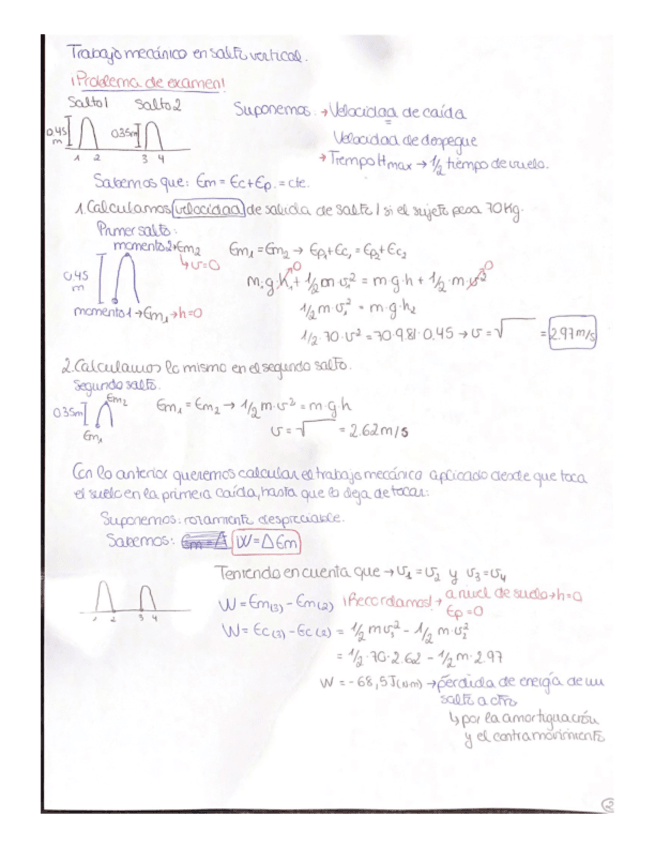 Trabajo mecánico en salto vertical.
¡Problema de examen!
Salto 1 Salto 2
0.45 m 0.35m
1 2 3 4
Suponemos: → Velocidad de caída
=
Velocidad de despegue
→ Tiempo Hmax → 1/2 tiempo de vuelo.
Sabemos que: Em = Ec + Ep = cte.
1. Calculamos velocidad de salida de salto 1 si el sujeto pesa 70Kg.
Primer salto:
momento 2 → Em2
↳ v=0
0.45 m
momento 1 → Em1 → h=0
Em1 = Em2 → Ep1 + Ec1 = Ep2 + Ec2
m·g·h1 + 1/2 m v1² = m·g·h + 1/2·m·v²
0 0
1/2 m·v1² = m·g·h2
1/2·70·v² = 70·981·0.45 → v = √ = 2.97 m/s
2. Calculamos lo mismo en el segundo salto.
Segundo salto.
0.35m Em2
Em1
Em1 = Em2 → 1/2 m·v² = m·g·h
v = √ = 2.62 m/s
Con lo anterior queremos calcular el trabajo mecánico aplicado desde que toca
el suelo en la primera caída, hasta que lo deja de tocar:
Suponemos: rozamiento despreciable.
Sabemos: W = ΔEm
Teniendo en cuenta que → v1 = v2 y v3 = v4
1 2 3 4
W = Em(3) - Em(2) ¡Recordamos! → a nivel de suelo → h=0
Ep = 0
W = Ec(3) - Ec(2) = 1/2 m v3² - 1/2 m·v2²
= 1/2·70·2.62 - 1/2 m·2.97
W = -68,5 J (N·m) → pérdida de energía de un
salto a otro
↳ por la amortiguación
y el contramovimiento
2